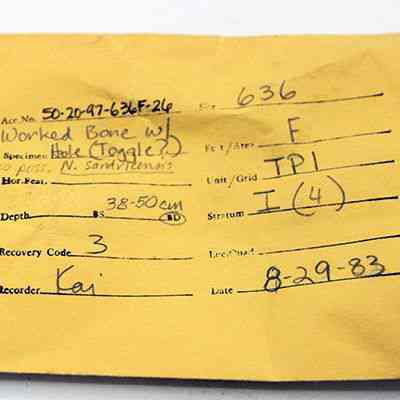 Acc. No. 50-20-97-636F-26
Worked Bone w/
Specimen Hole (Toggle?)
poss. N. sandvicensis
Hor. Feat.
38-50 cm
Depth BS BD
Recovery Code 3
Recorder Kai
636
F
Unit/Grid TP1
Stratum I (4)
Loc/Quad.
Date 8-29-83